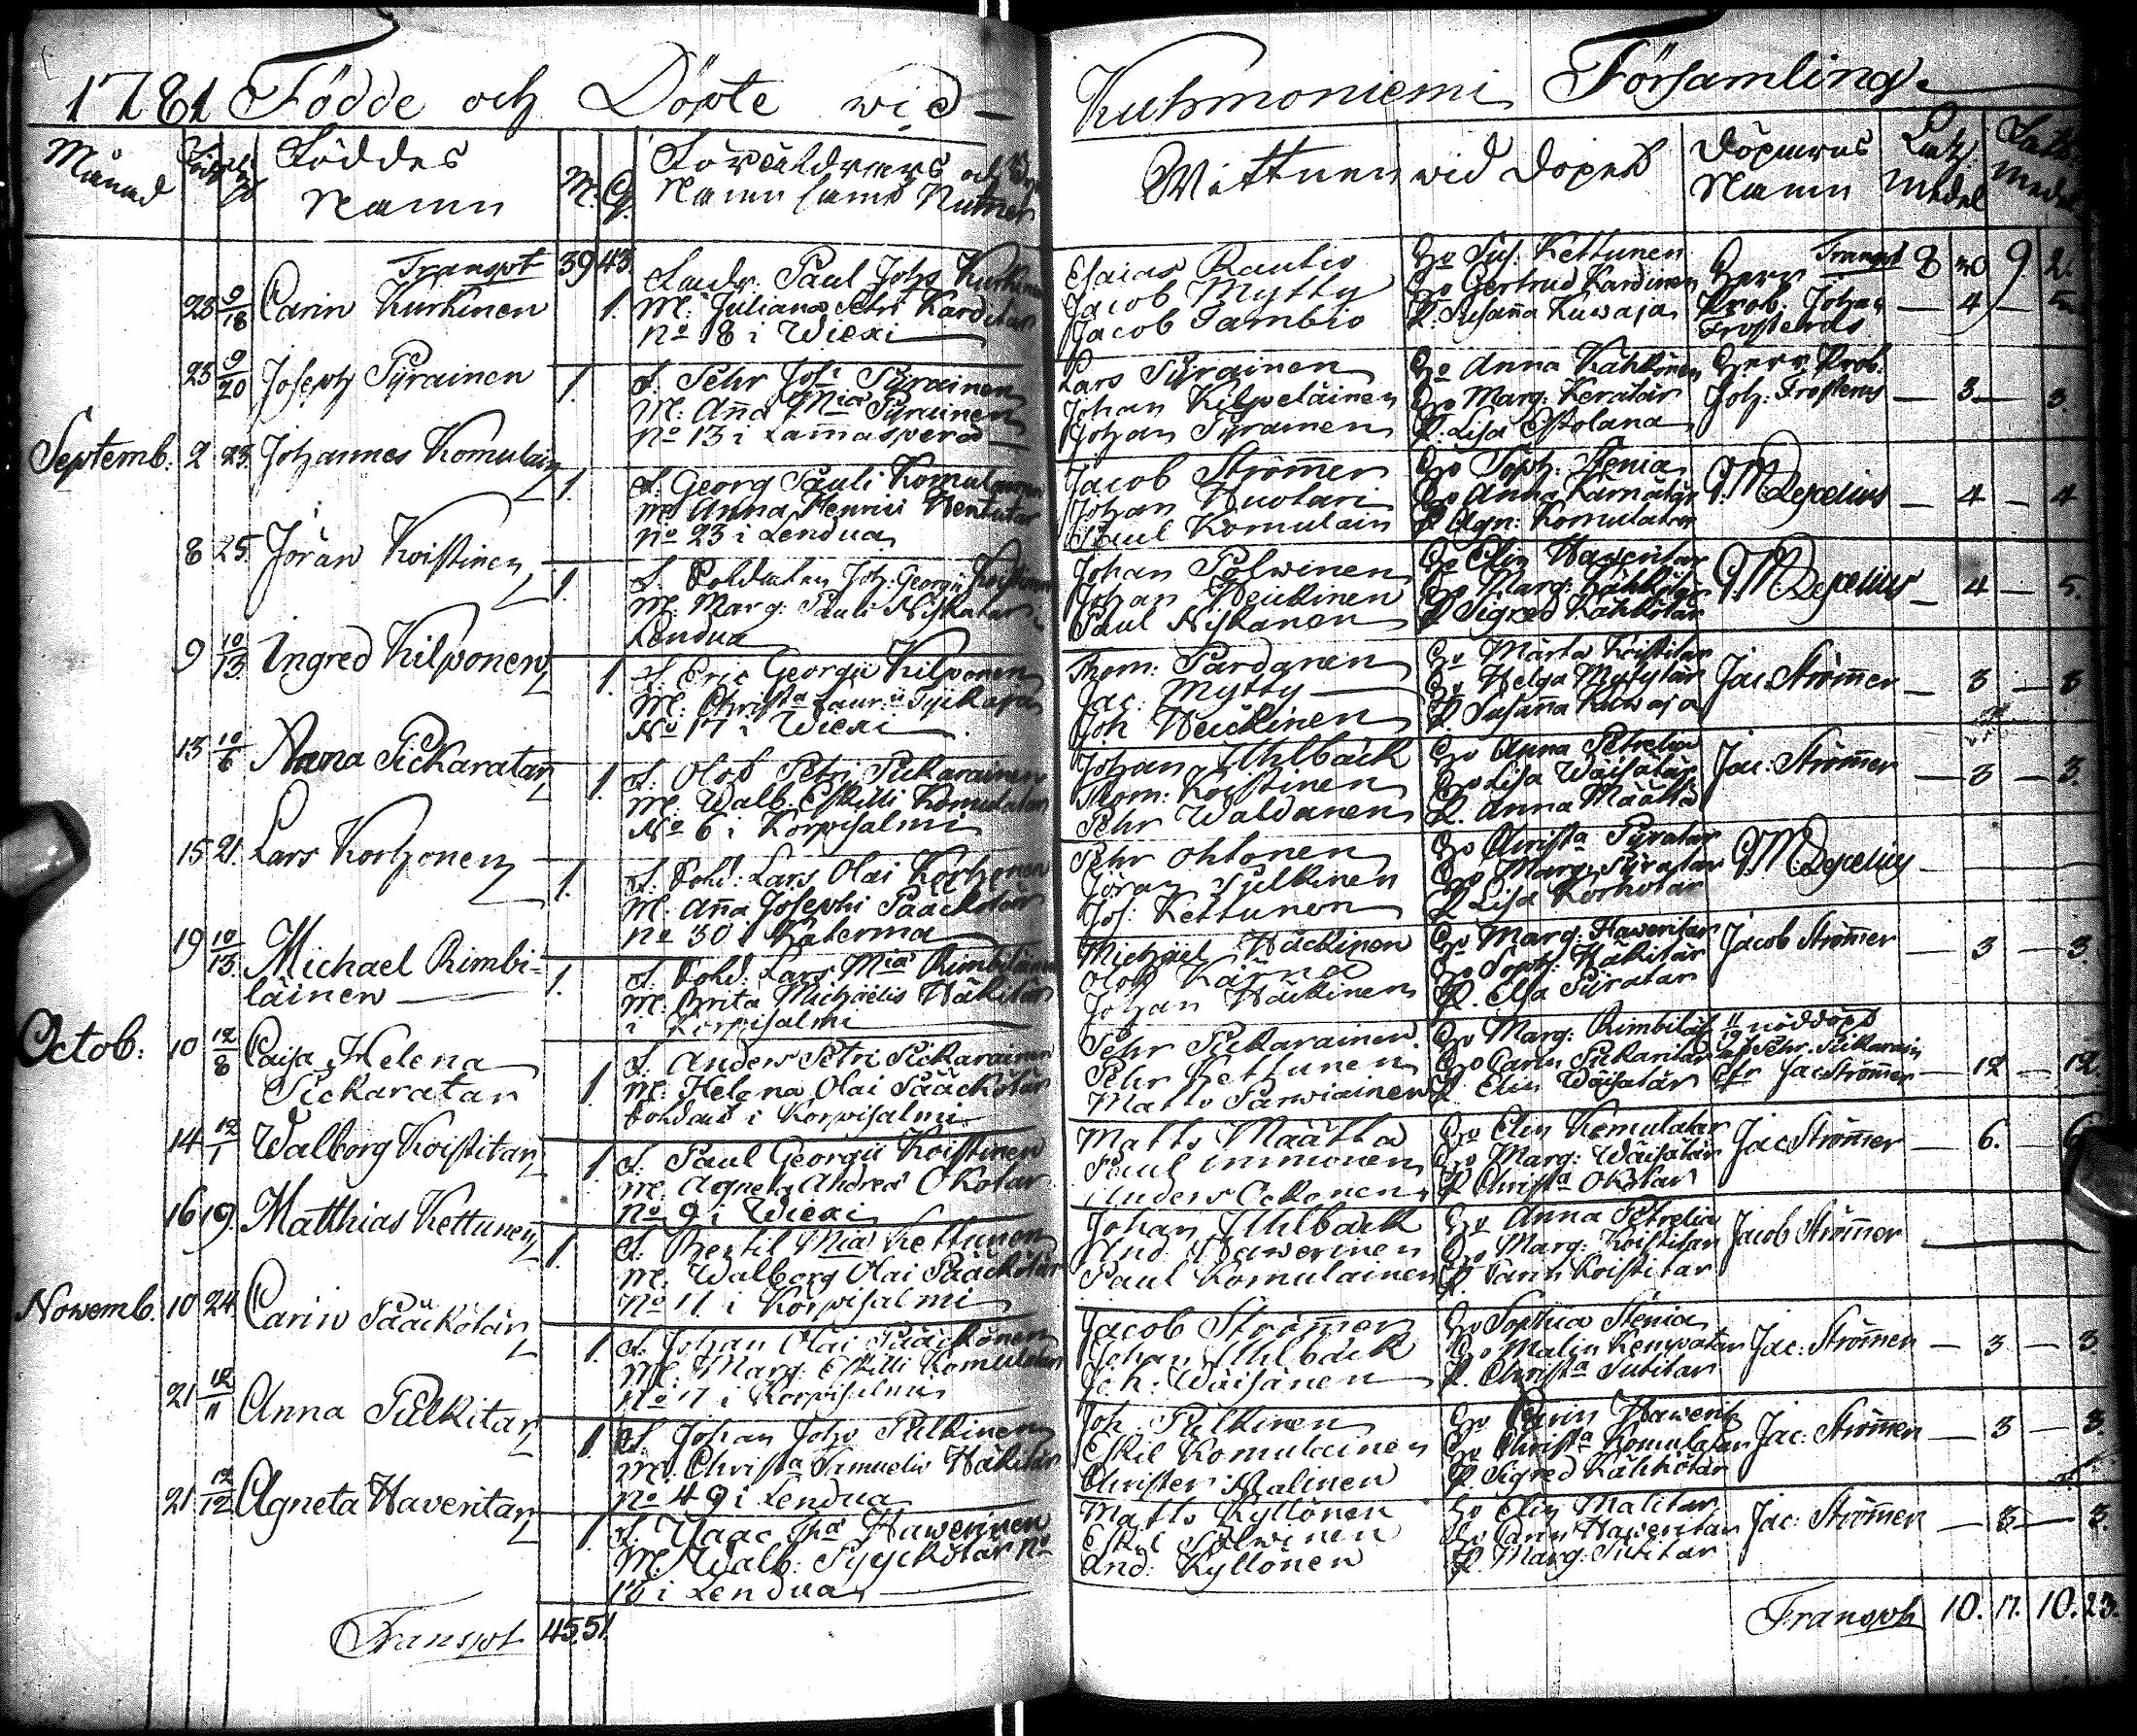 1781 Födde och Döpte wid Kuhmoniemi Församling
Månad Född Döpt Föddes Namn M. Q. Föräldrars och Namn samt Numer
Wittnen wid Dopet Döparens Namn
Transpt 39 43.
Transpt 8 20 9 21.
23 9/18 Carin Kurkinen 1.
Paul Johs Kurkinen
M: Juliana Petri Karditar
No 8 i Wiexi
Esaias Rautio
Jacob Mytty
Jacob Tambio
Ho Sus. Kettunen
Ho Gertrud Kardinen
P. Susanna Kuwaja
Herr Prob. Johan Frosterus — 4 — 5
23 9/20 Joseph Pyrainen 1.
F. Pehr Johs Pyrainen
M: Anna Miae Pyrainen
No 13 i Lammasperä
Lars Pyrainen
Johan Kilpeläinen
Johan Pyrainen
Ho Anna Kähkönen
Ho Marg: Keratär
P. Lisa Estolana
Herr Prob. Joh: Frosterus — 3 — 3.
Septemb: 2 23. Johannes Komulain 1.
F. Georg Pauli Komulainen
M: Anna Henrici Wentutar
No 23 i Lendua
Jacob Strömmer
Johan Huotari
Paul Komulain
Ho Soph: Stenia
Ho Anna Kärnätär
P. Agn: Komulatar
— 4 — 4
8 25. Jöran Koistinen 1.
F. Soldaten Joh: Georgii Koistinen
M: Marg: Pauli Niskatar
Lendua
Johan Polwinen
Johan Heickinen
Paul Niskanen
Ho Elin Haweritar
Ho Marg: Kähkötär
P. Sigred Kähkötär
— 4 — 5.
9 10/13. Ingred Kilponen 1.
F. Eric Georgii Kilponen
M: Christa Laur:ii
No 17 i Wiexi
Thom: Pardanen
Jac: Mytty
Joh Heickinen
Ho Märta Koistitar
Ho Helga Mytytär
P. Susanna Kuwaja
Jac. Strömmer — 3 — 3
13 10/6 Anna Pickaratar 1.
F. Olof Petri Pickarainen
M: Walb: Eskilli Komulatar
No 6 i Korpisalmi
Johan Uhlbäck
Thom: Koistinen
Pehr Waldanen
Ho Anna Petrelia
Ho Lisa Wäisätär
P. Anna Määttä
Jac: Strömmer — 3 — 3.
15 21. Lars Korhonen 1.
F. Sold: Lars Olai Korhonen
M: Anna Josephi Pääckötär
No 30 i Katerma
Pehr Ohtonen
Jöran Pulkinen
Jos: Kettunen
Ho Christa Pyratar
Ho Marg: Pyratar
P. Lisa Korhotar
19 10/13. Michael Rimbiläinen 1.
F. Sold: Lars Miae Rimbiläinen
M: Brita Michaelis Häkitär
i Korpisalmi
Michael Häckinen
Olof Kärnä
Johan Häckinen
Ho Marg: Haweritar
Ho Soph: Häkitär
P. Elsa Pyratar
Jacob Strömmer — 3 — 3.
Octob: 10 12/8 Caisa Helena Pickaratar 1.
F. Anders Petri Pickarainen
M: Helena Olai Pääckötär
Soldat i Korpisalmi
Pehr Pickarainen.
Pehr Kettunen
Matts Parwiainen
Ho Marg: Rimbilät
Ho Carin Pickaritar
P. Elin Wäisätär
11/10 nöddöpt af Pehr Pickarain
Cfr Jac Strömmer — 12 — 12.
14 12/1 Walborg Koistitar 1.
F. Paul Georgii Koistinen
M: Agneta Andreae Okotar
No 9 i Wiexi
Matts Määttä
Paul Immonen
Anders Ockonen
Ho Elin Komulatar
Ho Marg: Wäisätär
P. Christa Okotar
Jac Strömmer — 6. — 6
16 19. Matthias Kettunen 1.
F. Bertil Miae Kettunen
M: Walborg Olai Pääckötär
No 11 i Korpisalmi
Johan Uhlbäck
And: Hawerinen
Paul Komulainen
Ho Anna Petrelia
Ho Marg: Koistitar
P. Carin Koistitar
Jacob Strömmer
Nowemb. 10 24. Carin Pääckötär 1.
F. Johan Olai Pääckönen
M: Marg: Eskilli Komulatar
No 11 i Korpisalmi
Jacob Strömmer
Johan Uhlbäck
Joh: Wäisänen
Ho Sophia Stenia
Ho Malin Kempatar
P. Christa Tutitar
Jac: Strömmer — 3 — 3
21 12/11 Anna Pulkitar 1.
F. Johan Johs Pulkinen
M: Christa Samuelis Häkitär
No 49 i Lendua
Joh Pulkinen
Eskil Komulainen
Christer Malinen
Ho Carin Hawerit
Ho Christa Komulatar
P. Sigred Kähkötär
Jac: Strömmer — 3 — 3.
21 12/12 Agneta Haveritar 1.
F. Isaac Thae Hawerinen
M: Walb: Pyyckötär No
10 i Lendua
Matts Kyllönen
Eskil Polwinen
And: Kyllönen
Ho Elin Malitar
Ho Carin Haweritar
P. Marg: Tutitar
Jac: Strömmer — 3 — 3.
Transpt 45. 51.
Transpt 10. 17. 10. 23.